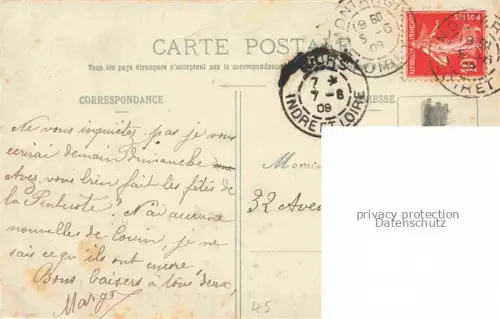 CARTE POSTALE
Tous les pays étrangers n'acceptent pas la correspondance
CORRESPONDANCE
ADRESSE
MONTARGIS
19 30
5 - 6
09
TOURS
7 - 6
09
INDRE ET LOIRE
POSTES
10
LOIRET
Ne vous inquiétez pas je vous
écrirai demain dimanche
Avez vous bien fait les fêtes de
la Pentecôte? N'ai aucune
nouvelles de je ne
sais ce qu'ils ont encore
Bons baisers à tous deux,
Margot
32 Aven
privacy protection
Datenschutz
45